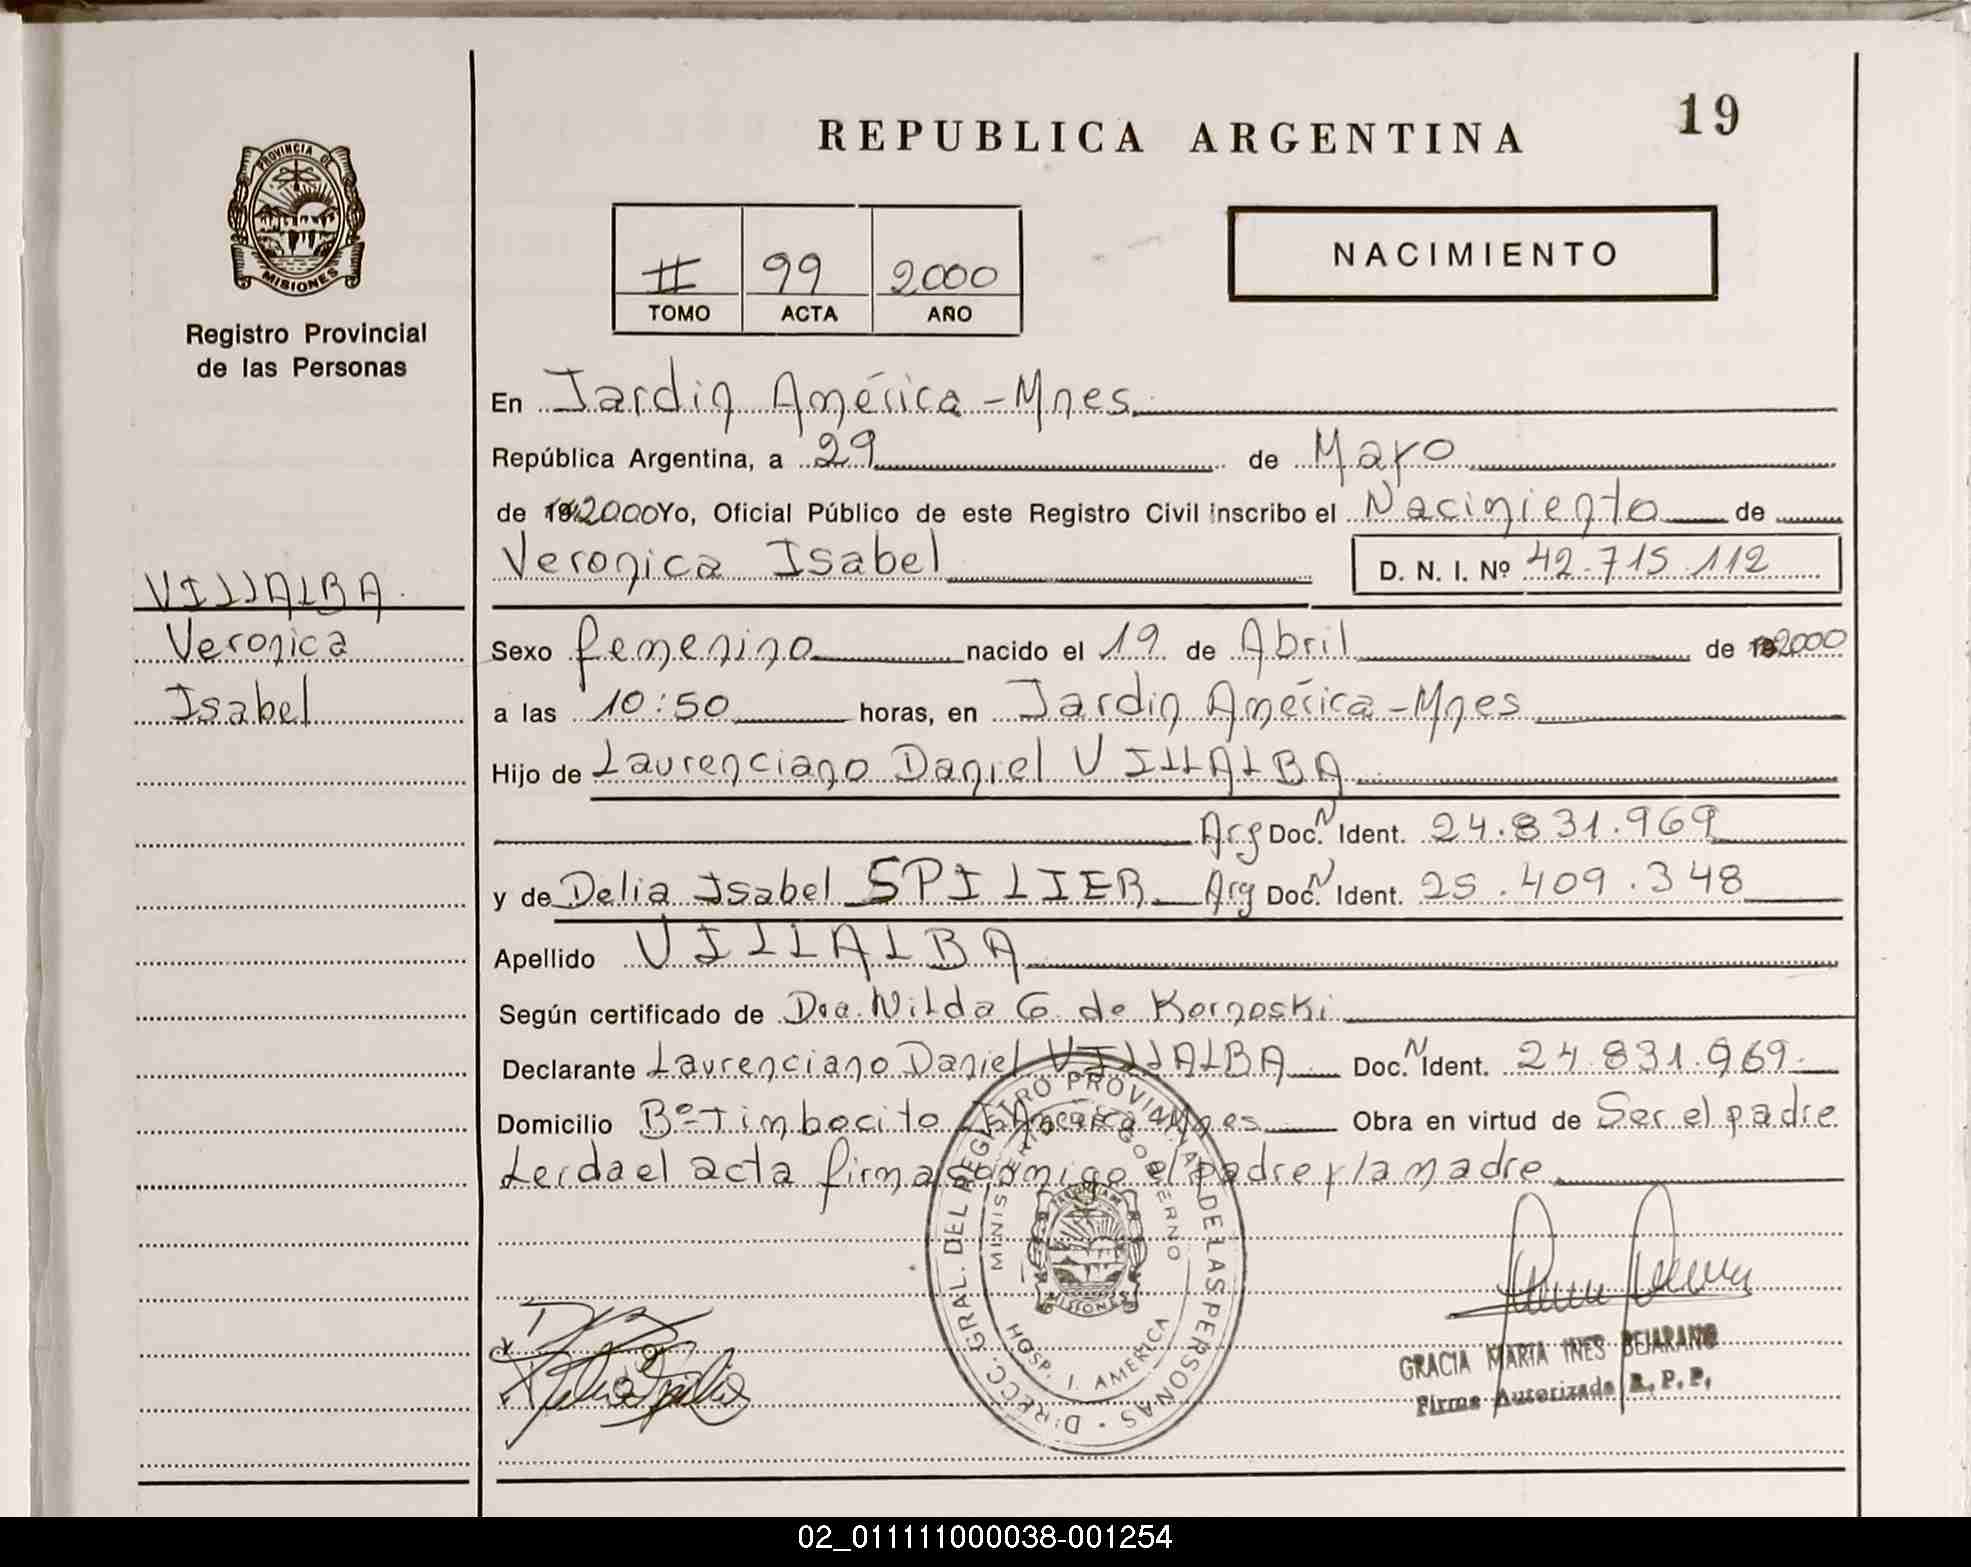 19
REPUBLICA ARGENTINA
PROVINCIA DE
MISIONES
Registro Provincial
de las Personas
II 99 2000
TOMO ACTA AÑO
NACIMIENTO
En Jardin América - Mnes.
República Argentina, a 29 de Mayo
de 19 2000 Yo, Oficial Público de este Registro Civil inscribo el Nacimiento de
Veronica Isabel D. N. I. Nº 42.715.112
VILLALBA.
Veronica
Isabel
Sexo femenino nacido el 19 de Abril de 19 2000
a las 10:50 horas, en Jardin América - Mnes
Hijo de Laurenciano Daniel VILLALBA
Arg Doc. N Ident. 24.831.969
y de Delia Isabel SPILIER Arg Doc. N Ident. 25.409.348
Apellido VILLALBA
Según certificado de Dra. Nilda G de Kornoski
Declarante Laurenciano Daniel VILLALBA Doc. N Ident. 24.831.969.
Domicilio Bº Timbocito J. América Mnes Obra en virtud de Ser el padre
Leida el acta firma conmigo el padre y la madre
DIRECC. GRAL. DEL REGISTRO PROVINCIAL DE LAS PERSONAS
MINISTERIO DE GOBIERNO
MISIONES
HOSP. J. AMERICA
GRACIA MARIA INES BEJARANO
Firma Autorizada R. P. P.
02_011111000038-001254